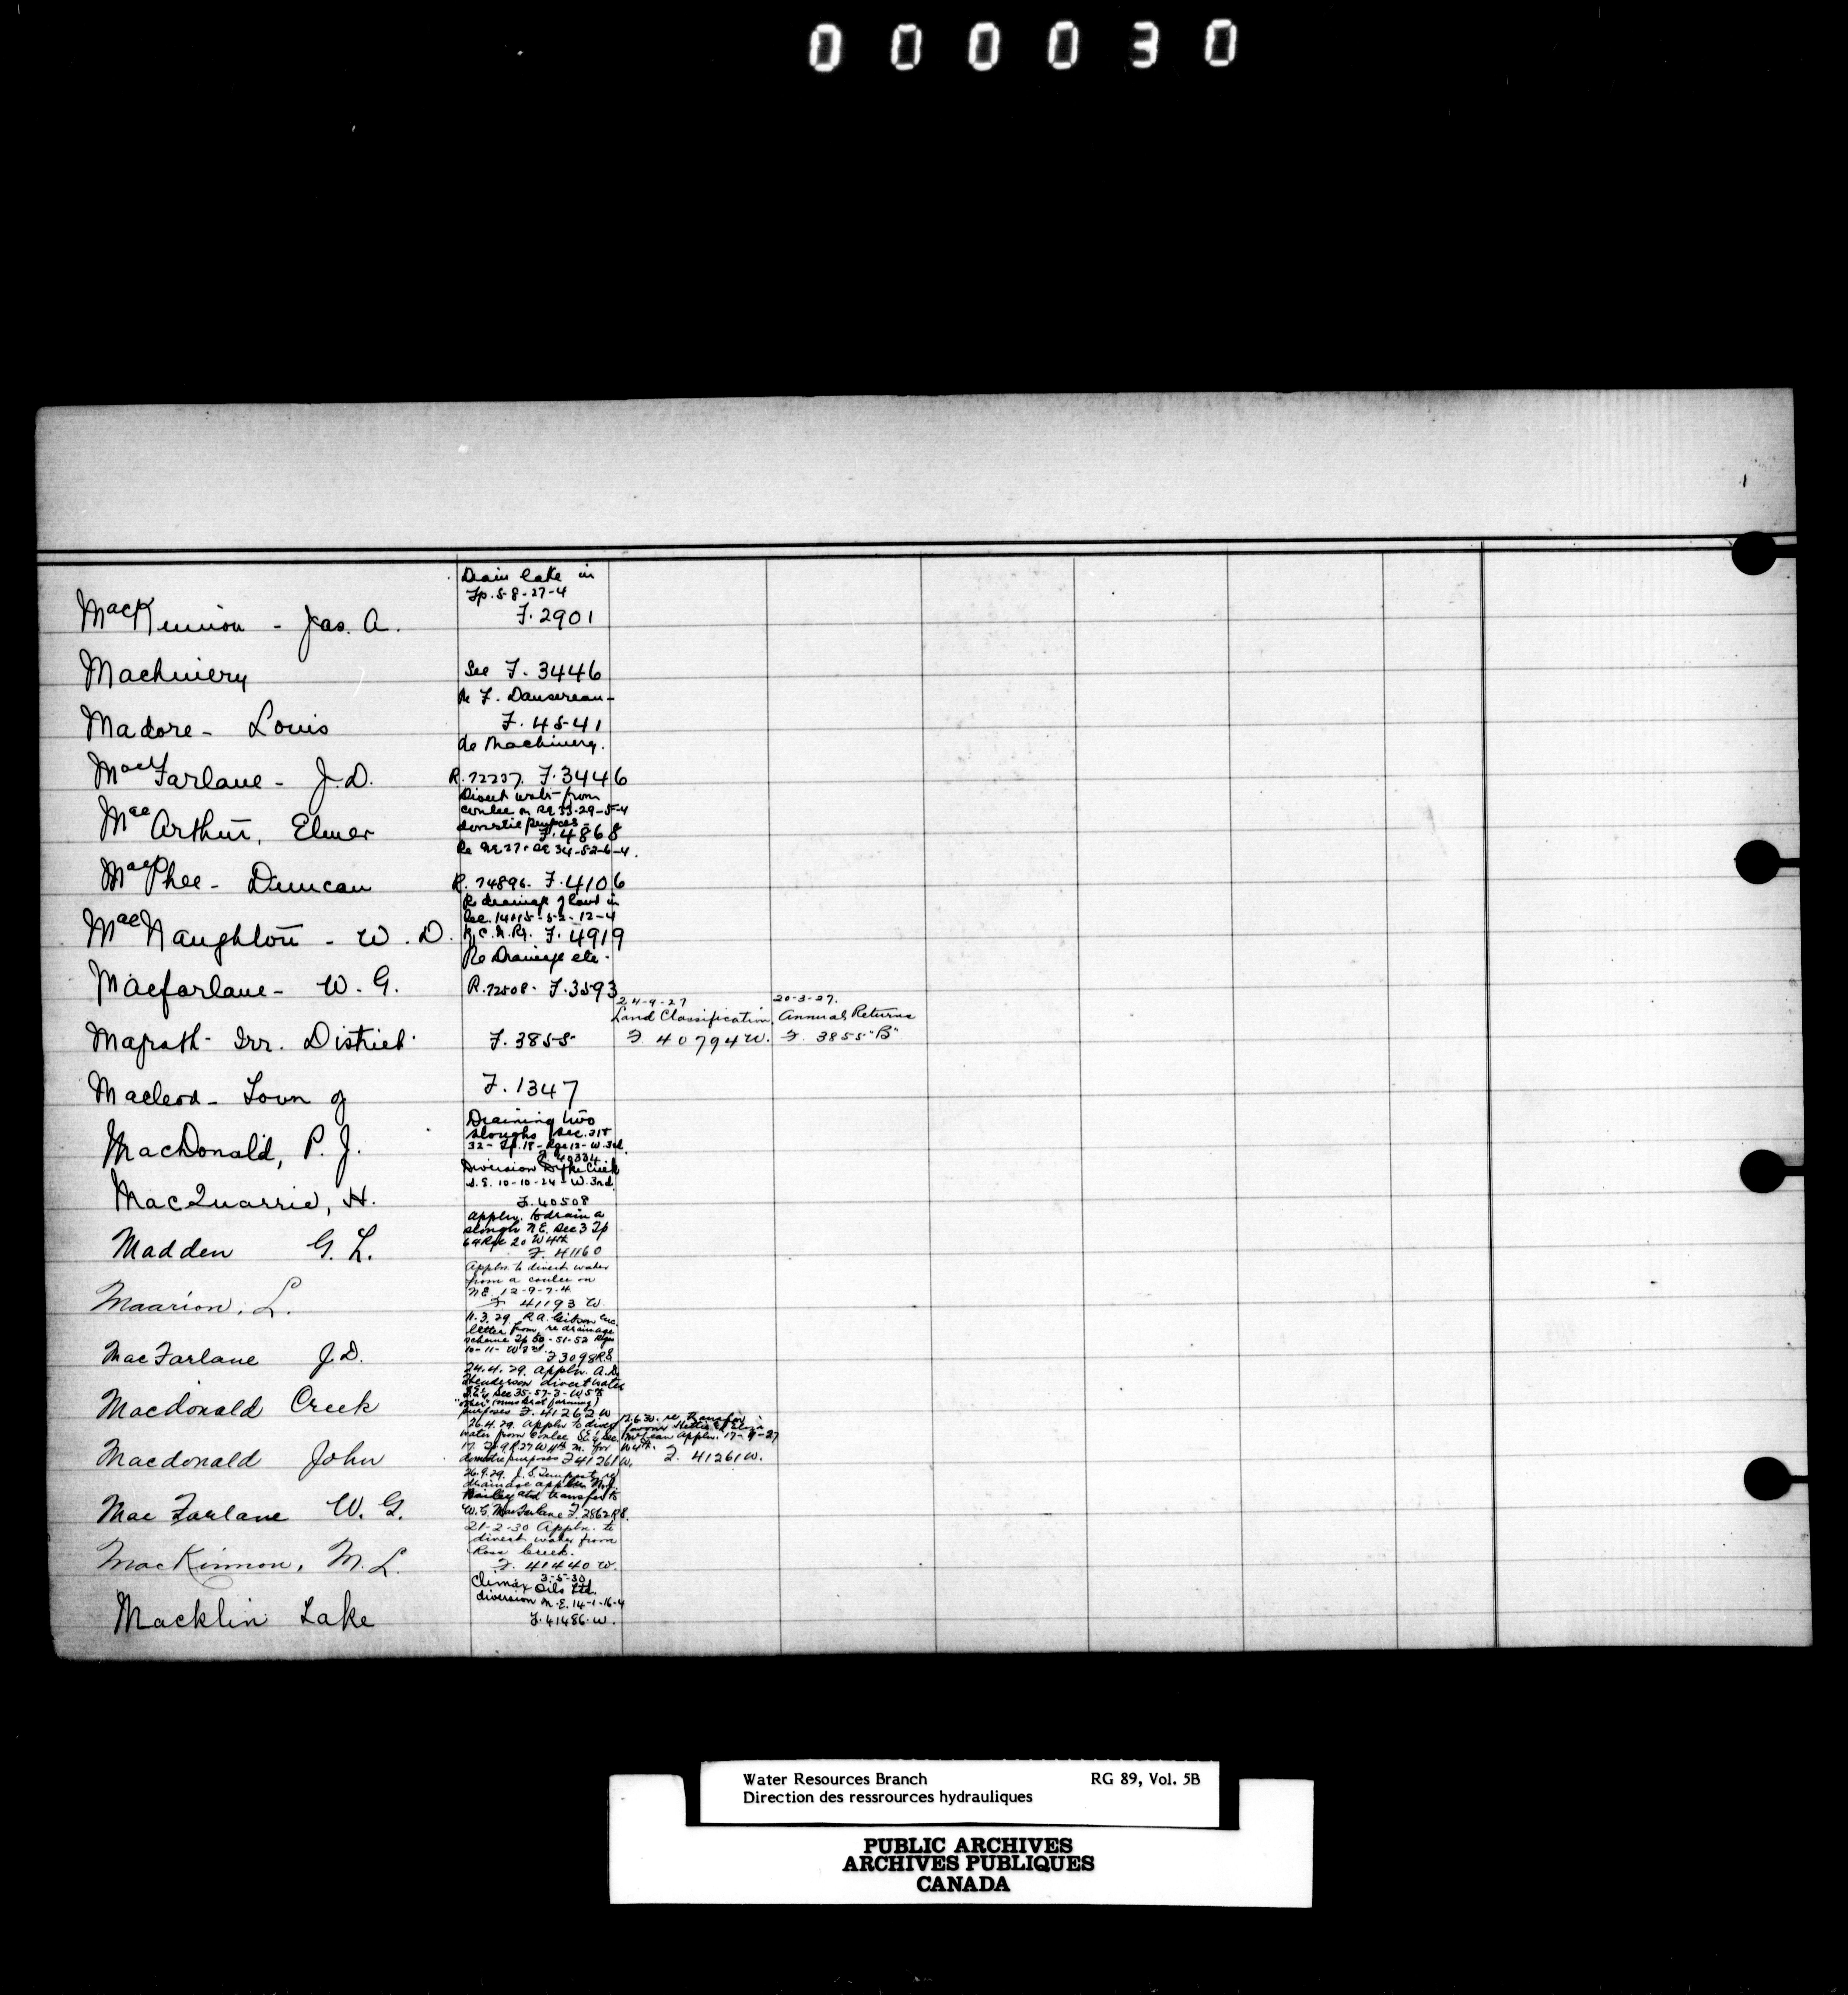 000030
Drain lake in
Tp. 58-27-4
MacKinnon - Jas. A. F. 2901
Machinery See F. 3446
Re F. Dansereau -
Madore - Louis F. 4541
de Machinery.
MacFarlane - J.D. R. 72237. F. 3446
Divert water from
coulee on SE 33-29-5-4
domestic purposes -
MacArthur, Elmer F. 4868
Re NE 27 & SE 34-52-6-4.
MacPhee - Duncan R. 74896. F. 4106
Re drainage of land in
Sec. 14&15-52-12-4
MacNaughton - W. D. R.C.N.Ry. F. 4919
Re Drainage etc.
Macfarlane - W. G. R. 72508. F. 3593
24-9-27 20-3-27.
Land Classification. Annual Returns
Magrath - Irr. District F. 3855 F 40794W. F. 3855 "B"
Macleod - Town of F. 1347
Draining two
sloughs Sec. 31&
32 - Tp. 18 - Rge 12 - W. 3rd.
MacDonald, P. J. F. 40334
Diversion Dyke Creek
S.E. 10-10-24-W. 3rd
MacQuarrie, H. F. 40508
Appln. to drain a
slough N.E. Sec 3 Tp
64 Rge 20 W 4th
Madden G. L. F. 41160
Appln. to divert water
from a coulee on
N.E. 12-9-7-4
Maarion, L. F 41193 W.
11.3.29. R.A. Gibson Enc.
letter from, re drainage
scheme Tp 50-51-52 Rges
10-11- W 2nd.
MacFarlane J.D. F 3098R8
24.4.29. Appln. A.D.
Henderson divert water
S.E¼ Sec 35-57-3-W5th
"other" (muskrat farming)
Macdonald Creek purposes F. 41262 W
26.4.29. Appln to divert
water from Coulee S.E¼ Sec.
17. Tp 9 R 27 W 4th M. for
Macdonald John domestic purposes F 41261 W.
12.6.30. re transfer
favour Hettie & Eliza
McLean Appln. 17-9-27
W4th.
F. 41261W.
26.9.29. J. S. Tempest, re
drainage appln
Bailey and transfer to
Mac Farlane W. G. W. G. MacFarlane F. 2862R8.
21-2-30 Appln. to
divert water from
Ross Creek.
MacKinnon, M. L. F. 41440 W.
3-5-30
Climax Oils Ltd.
diversion N.E. 14-1-16-4
Macklin Lake F. 41486. W.
Water Resources Branch RG 89, Vol. 5B
Direction des ressrources hydrauliques
PUBLIC ARCHIVES
ARCHIVES PUBLIQUES
CANADA